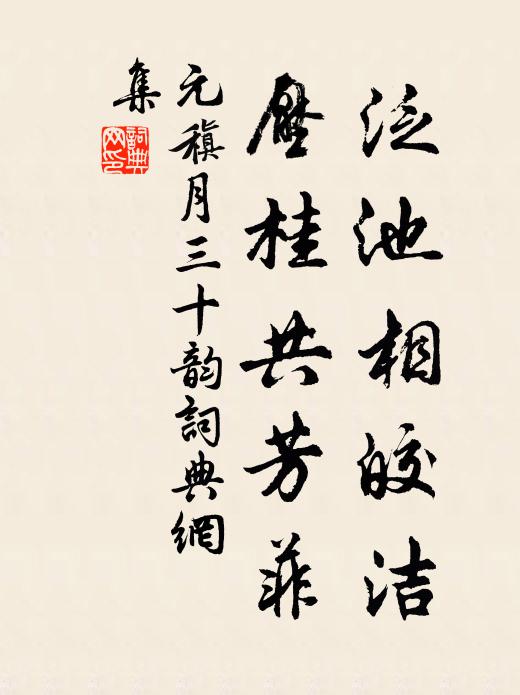 泛池相皎洁
压桂共芳菲
元稹月三十韵词典網
集
詞典
网印